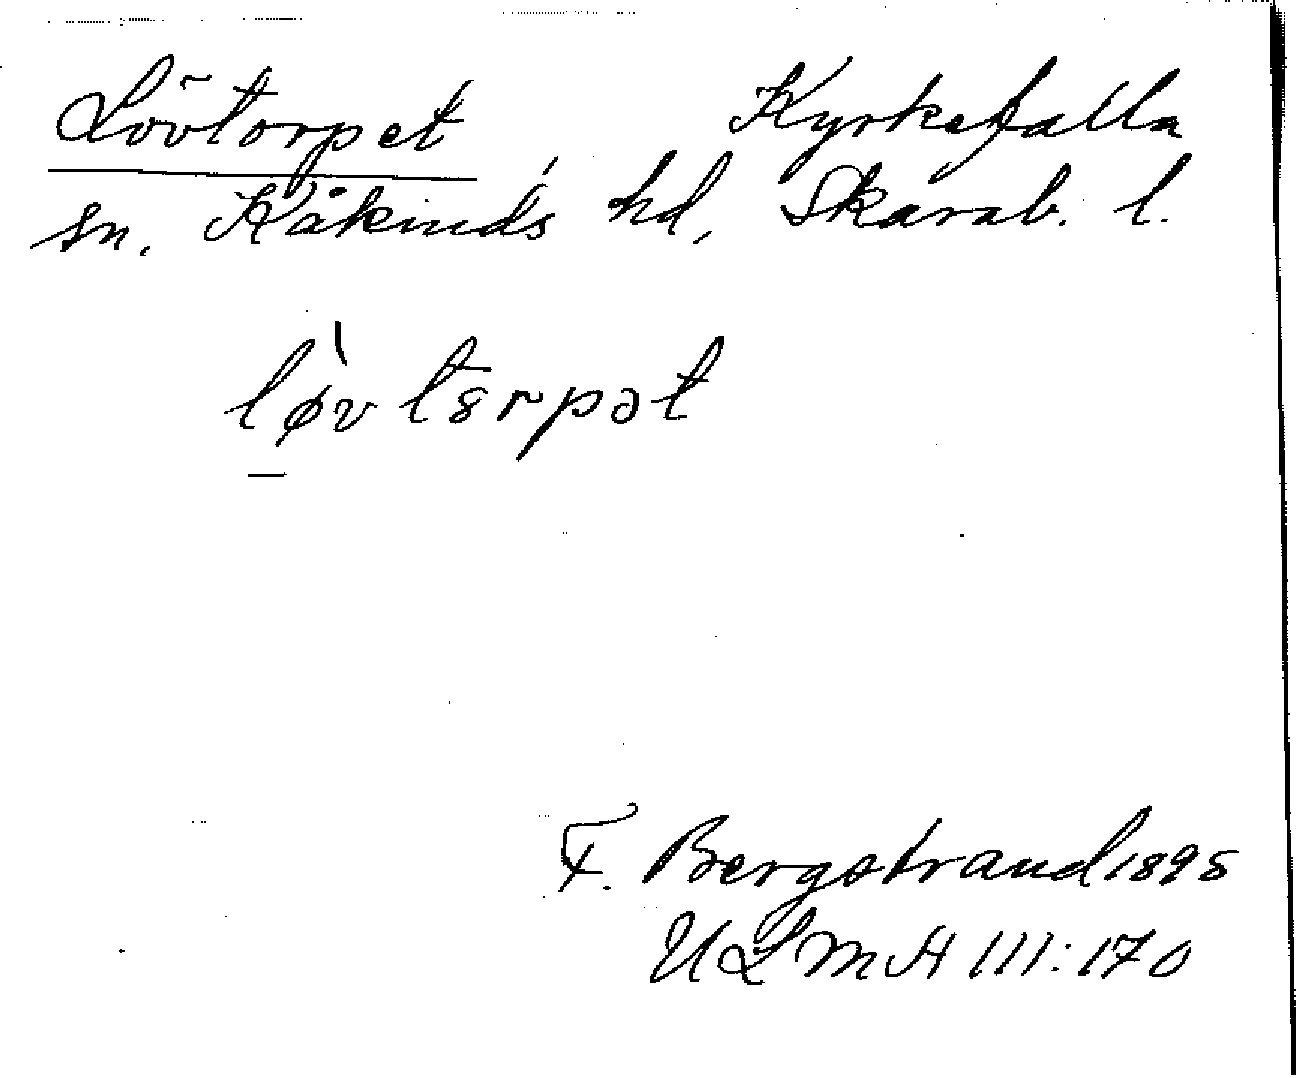 Lövtorpet Kyrkefalla
sn. Kåkinds hd, Skarab. l.
lø̀vtȣrpət
F. Bergstrand 1895
ULMA 111:170